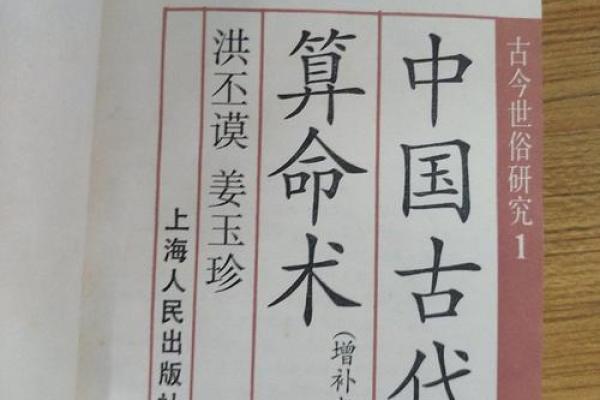 古今世俗研究1
中国古代
算命术
(增补
洪丕谟 姜玉珍
上海人民出版社